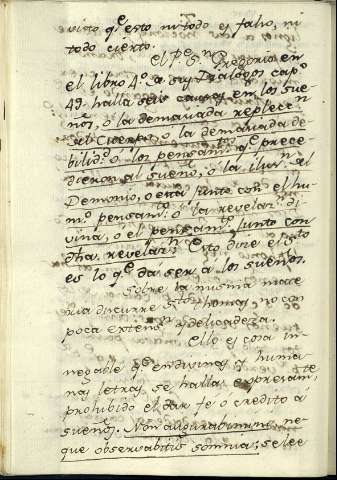 visto q.e esto ni todo es falso, ni
todo cierto.
el P.e S.n Gregorio en
el libro 4.o de sus Dialogos cap.o
49. halla seis causas en los sue-
ños, ò la demasiada replecc.n
del Cuerpo ò la demasiada de-
bilid.d ò los pensam.tos q.e prece-
dieron al sueño, ò la ilus.n del
Demonio, ò esta junto con el hu-
m.o pensam.to ò la revelar.n di-
vina, ò el pensam.to junto con
dha, revelar.n Esto dice el s.to
es lo q.e dà ser a los sueños.
Sobre la misma mate
ria discurre s.to Thomas, no con
poca extens.n y delicadeza.
Ello es cosa in-
negable q.e en divinas y huma-
nas letras se halla expresam.te
prohibido el dar fe ò credito à
sueños. Non augurabimini, ne-
que observabitis somnia; se lee